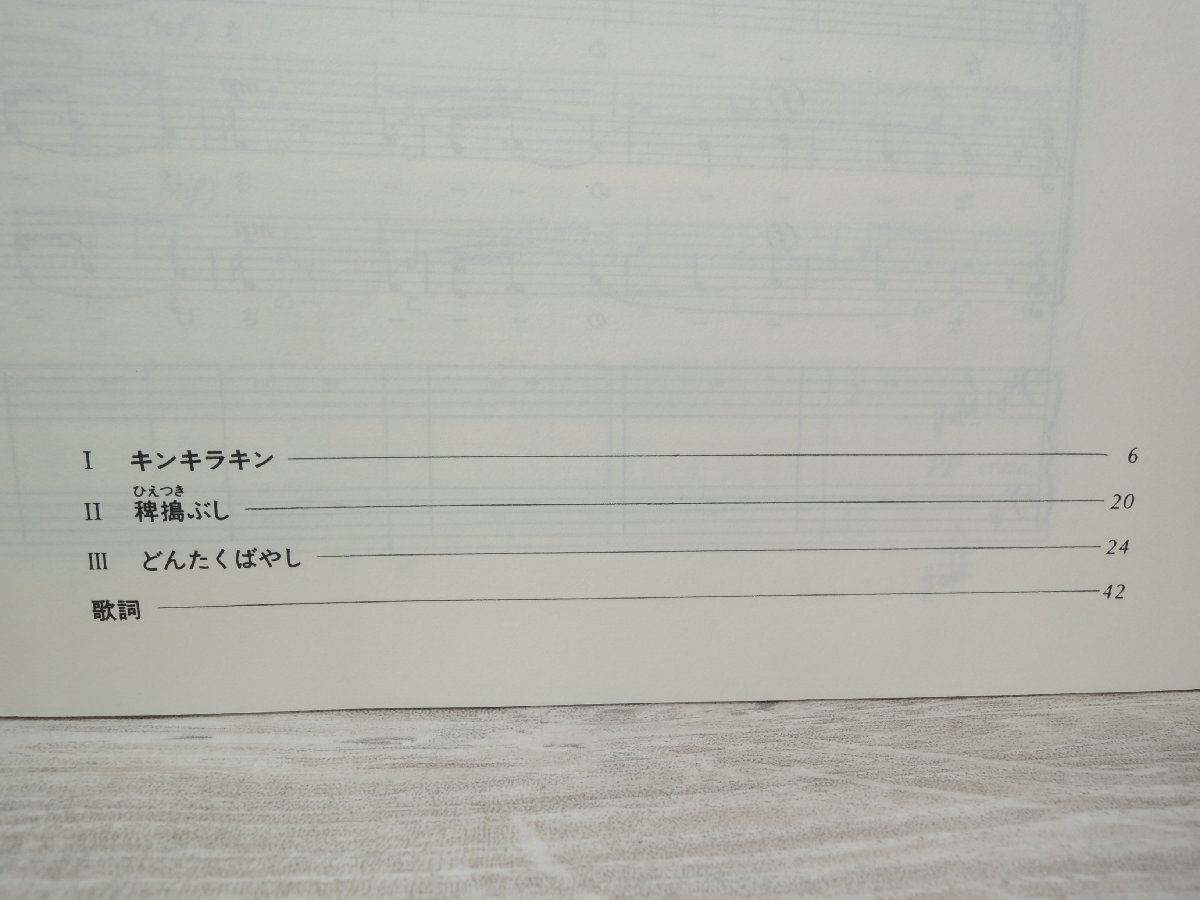 I キンキラキン 6
ひえつき
II 稗搗ぶし 20
III どんたくばやし 24
歌詞 42